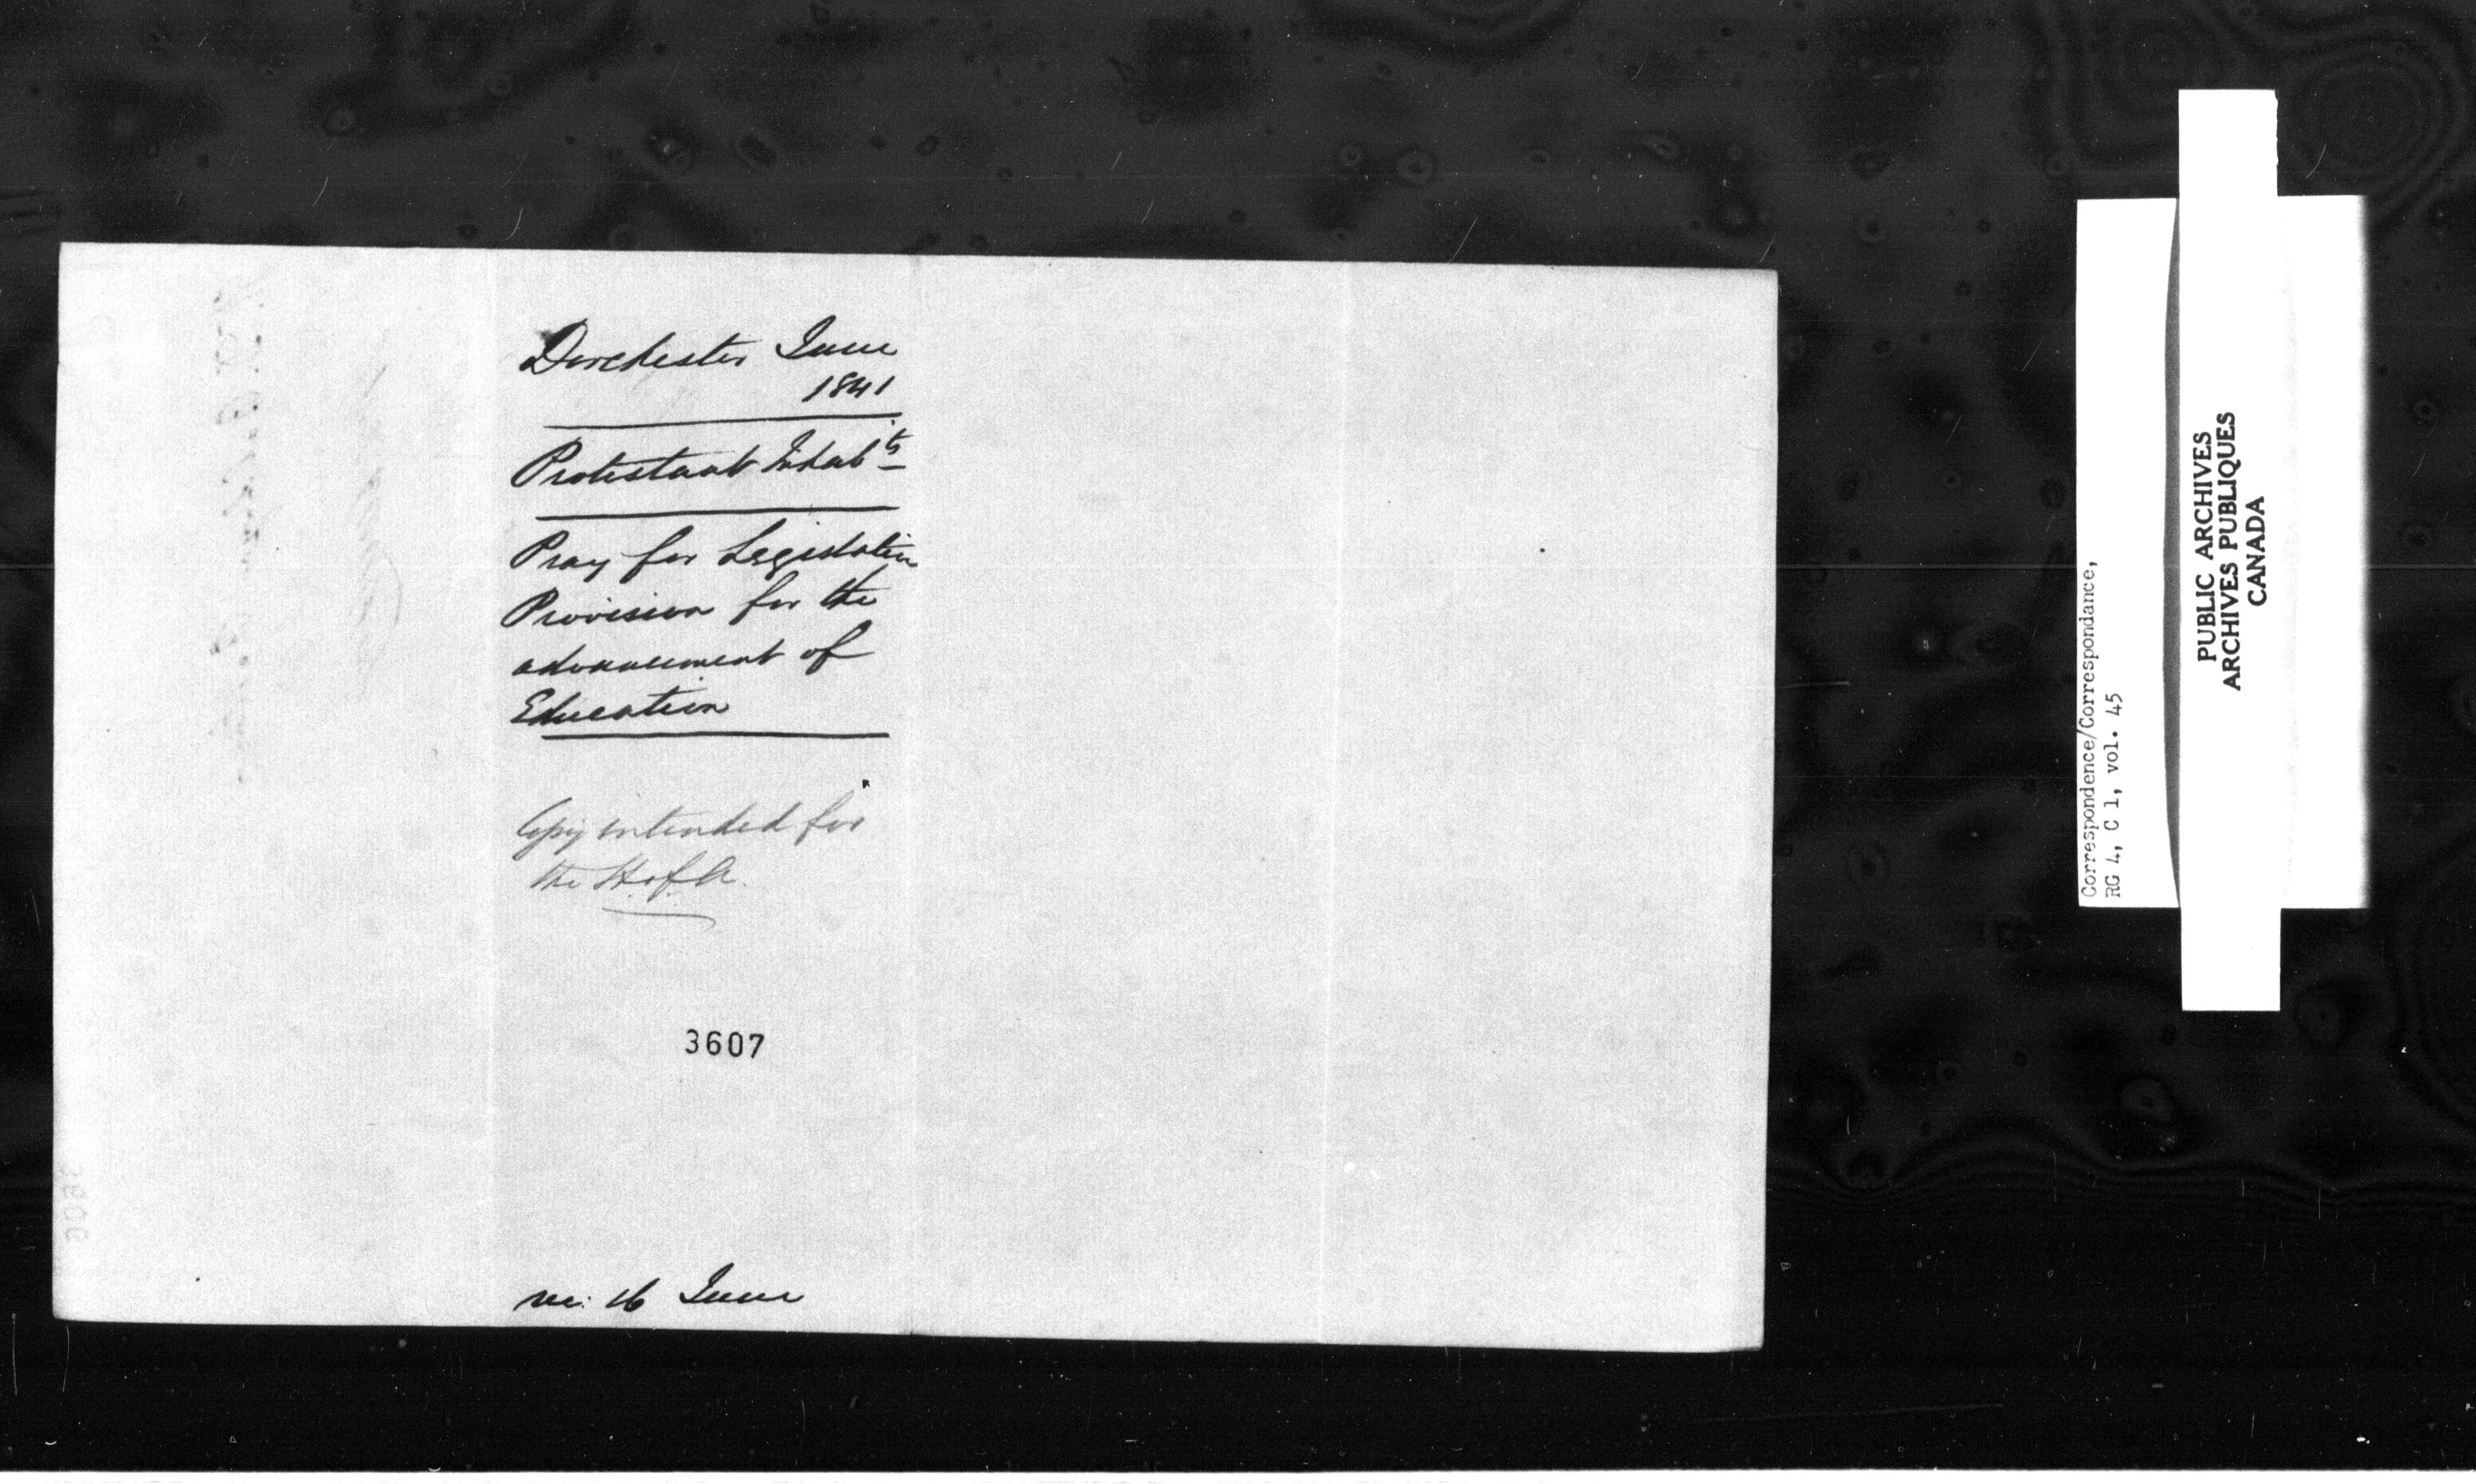 Dorchester June
1841
Protestant Inhabts
Pray for Legislative
Provision for the
advancement of
Education
Copy intended for
the H. of A.
3607
rec: 16 June
3606
Correspondence/Correspondance,
RG 4, C 1, vol. 45
PUBLIC ARCHIVES
ARCHIVES PUBLIQUES
CANADA